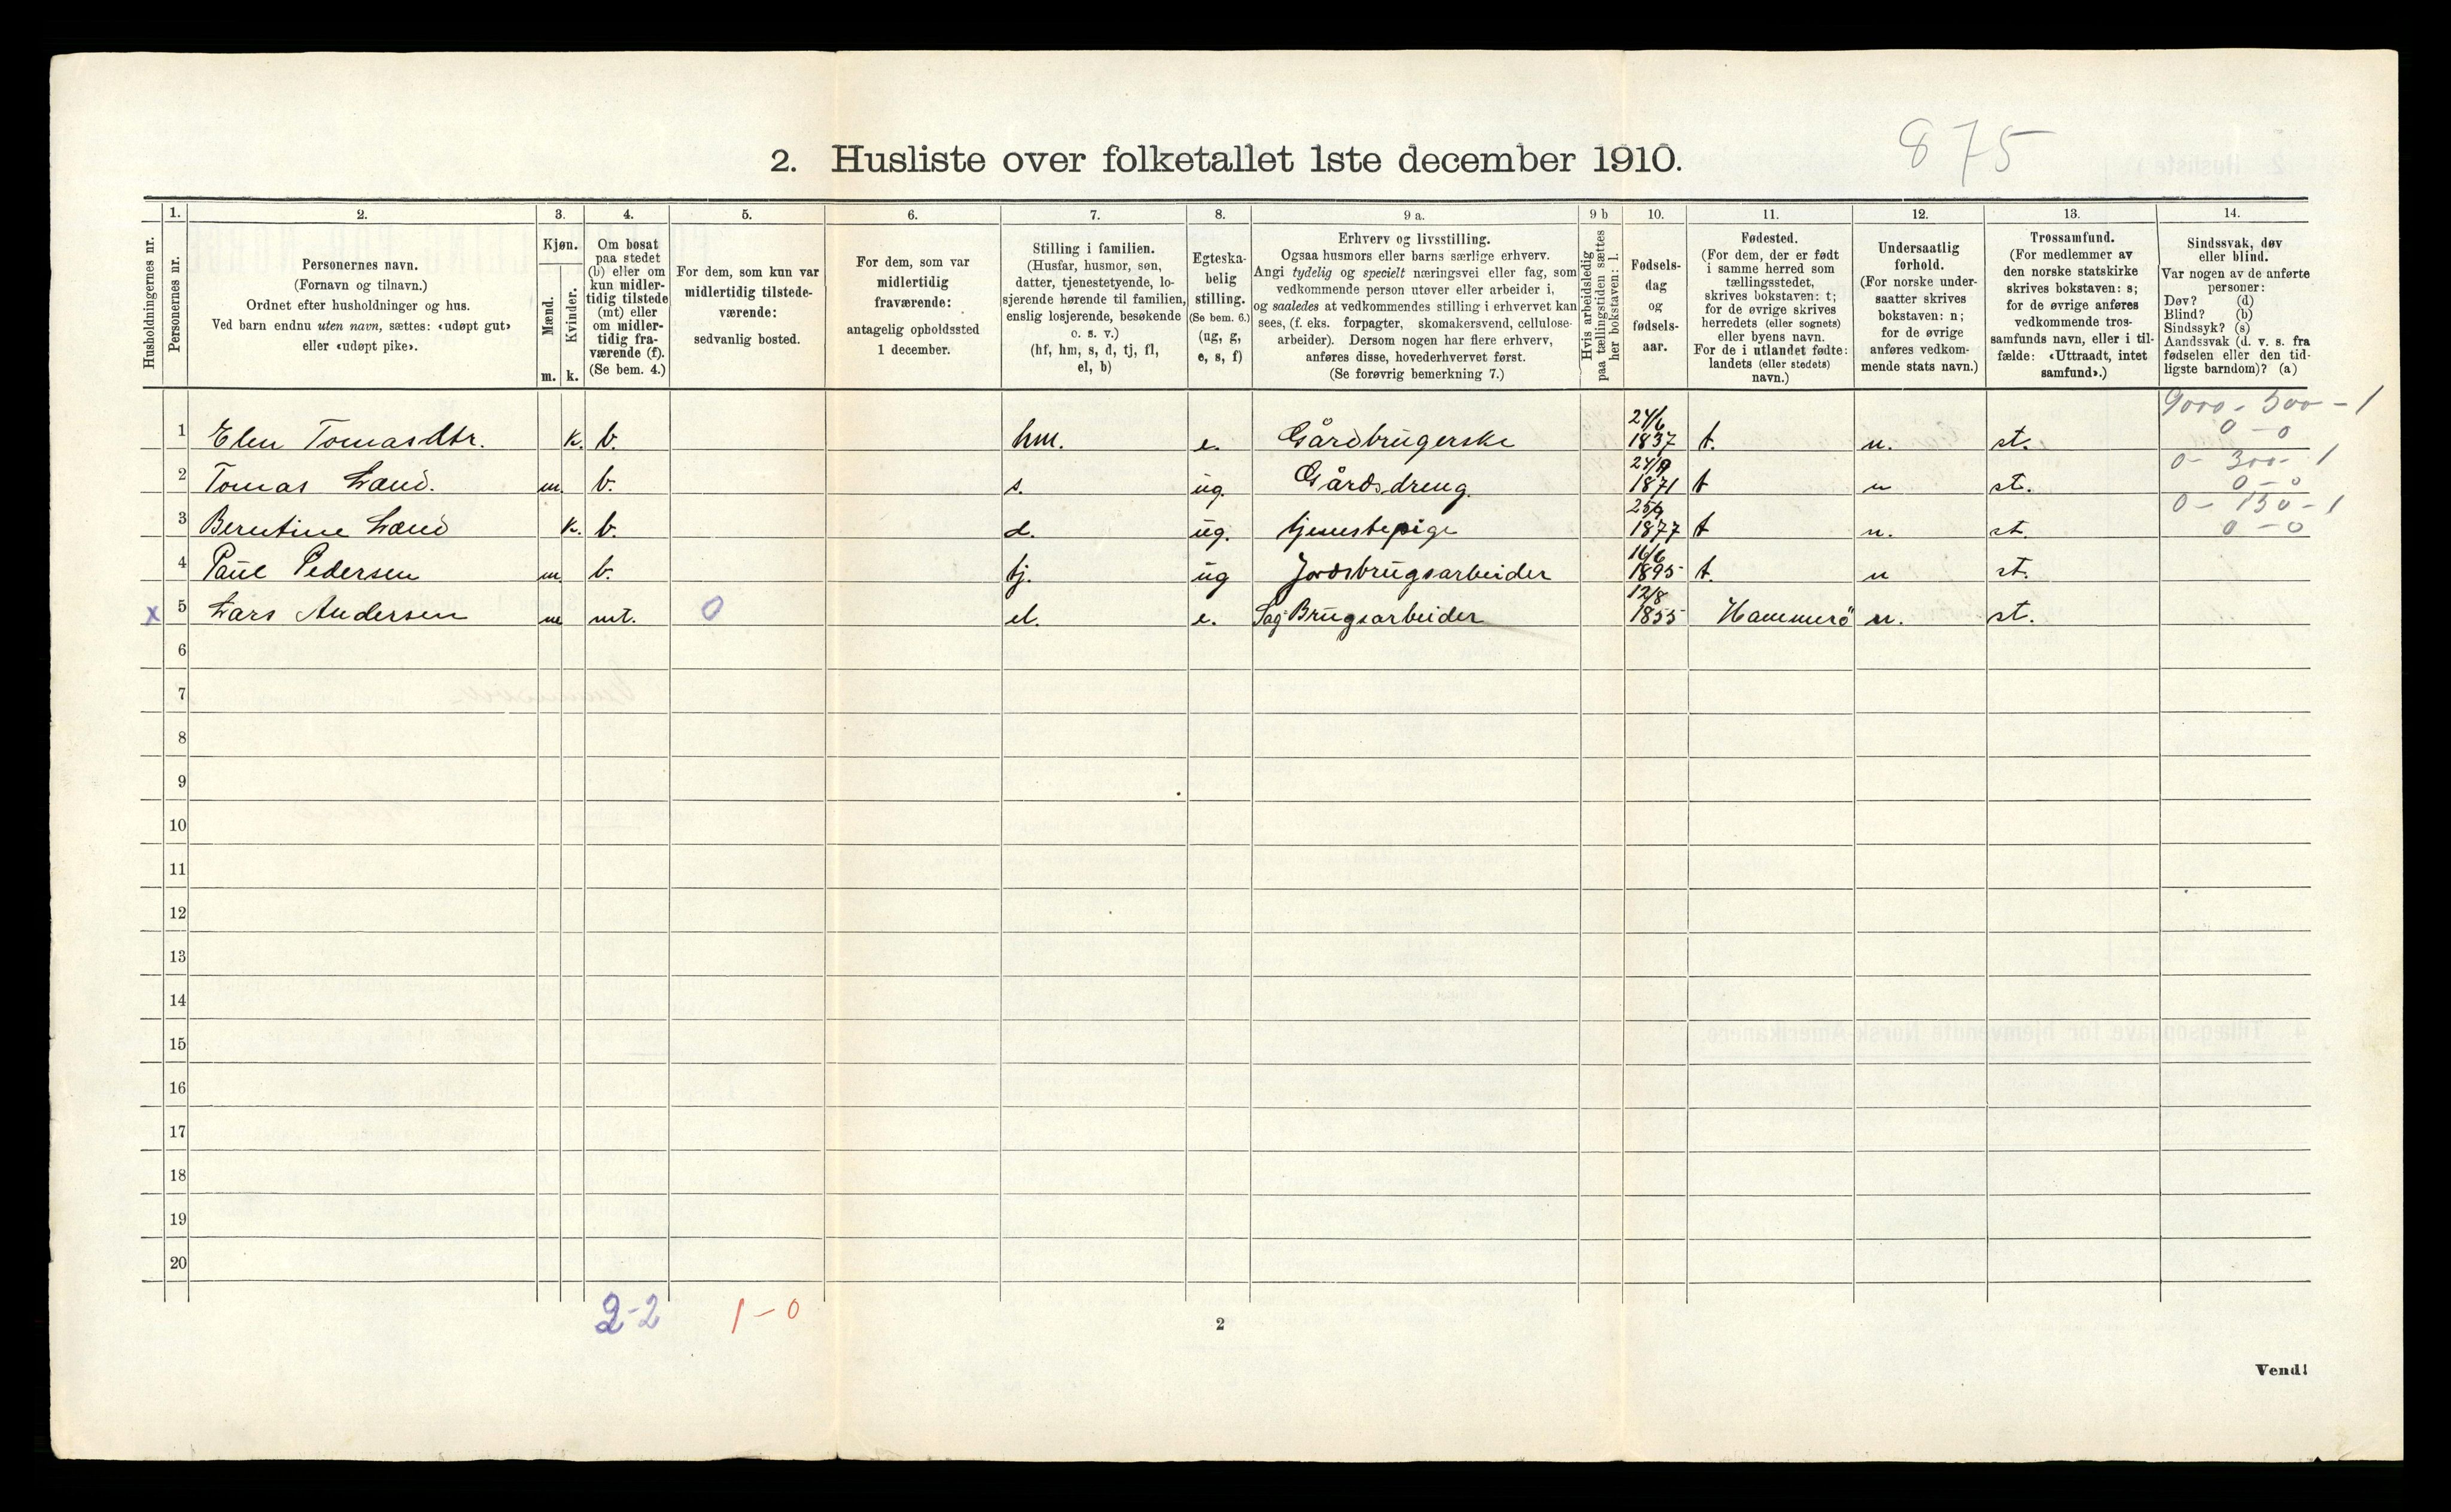 875
2. Husliste over folketallet 1ste december 1910.
1. 2. 3. 4. 5. 6. 7. 8. 9 a. 9 b 10. 11. 12. 13. 14.
Husholdningernes nr.
Personernes nr.
Personernes navn.
(Fornavn og tilnavn.)
Ordnet efter husholdninger og hus.
Ved barn endnu uten navn, sættes: «udøpt gut»
eller «udøpt pike».
Kjøn.
Mænd.
Kvinder.
m. k.
Om bosat
paa stedet
(b) eller om
kun midler-
tidig tilstede
(mt) eller
om midler-
tidig fra-
værende (f).
(Se bem. 4.)
For dem, som kun var
midlertidig tilstede-
værende:
sedvanlig bosted.
For dem, som var
midlertidig
fraværende:
antagelig opholdssted
1 december.
Stilling i familien.
(Husfar, husmor, søn,
datter, tjenestetyende, lo-
sjerende hørende til familien,
enslig losjerende, besøkende
o. s. v.)
(hf, hm, s, d, tj, fl,
el, b)
Egteska-
belig
stilling.
(Se bem. 6.)
(ug, g,
e, s, f)
Erhverv og livsstilling.
Ogsaa husmors eller barns særlige erhverv.
Angi tydelig og specielt næringsvei eller fag, som
vedkommende person utøver eller arbeider i,
og saaledes at vedkommendes stilling i erhvervet kan
sees, (f. eks. forpagter, skomakersvend, cellulose-
arbeider). Dersom nogen har flere erhverv,
anføres disse, hovederhvervet først.
(Se forøvrig bemerkning 7.)
Hvis arbeidsledig
paa tællingstiden sættes
her bokstaven: l.
Fødsels-
dag
og
fødsels-
aar.
Fødested.
(For dem, der er født
i samme herred som
tællingsstedet,
skrives bokstaven: t;
for de øvrige skrives
herredets (eller sognets)
eller byens navn.
For de i utlandet fødte:
landets (eller stedets)
navn.)
Undersaatlig
forhold.
(For norske under-
saatter skrives
bokstaven: n;
for de øvrige
anføres vedkom-
mende stats navn.)
Trossamfund.
(For medlemmer av
den norske statskirke
skrives bokstaven: s;
for de øvrige anføres
vedkommende tros-
samfunds navn, eller i til-
fælde: «Uttraadt, intet
samfund».)
Sindssvak, døv
eller blind.
Var nogen av de anførte
personer:
Døv? (d)
Blind? (b)
Sindssyk? (s)
Aandssvak (d. v. s. fra
fødselen eller den tid-
ligste barndom)? (a)
9000 - 500 - 1
1 Elen Tomasdtr. k. b. hm. e. Gårdbrugerske 24/6 1837 t. n. st. 0 - 0
0 - 300 - 1
2 Tomas Lænd. m. b. s. ug. Gårdsdreng 24/9 1871 t n st. 0 - 0
0 - 150 - 1
3 Berntine Lænd k. b. d. ug. tjenestepige 1877 t n. st. 0 - 0
4 Paul Pedersen m. b. tj. ug Jordsbrugsarbeider 16/6 1895 t. n st.
x 5 Lars Andersen m mt. 0 el. e. Sag-Brugsarbeider 12/8 1855 Hammerö n. st.
6
7
8
9
10
11
12
13
14
15
16
17
18
19
20
2-2 1-0
2
Vend!